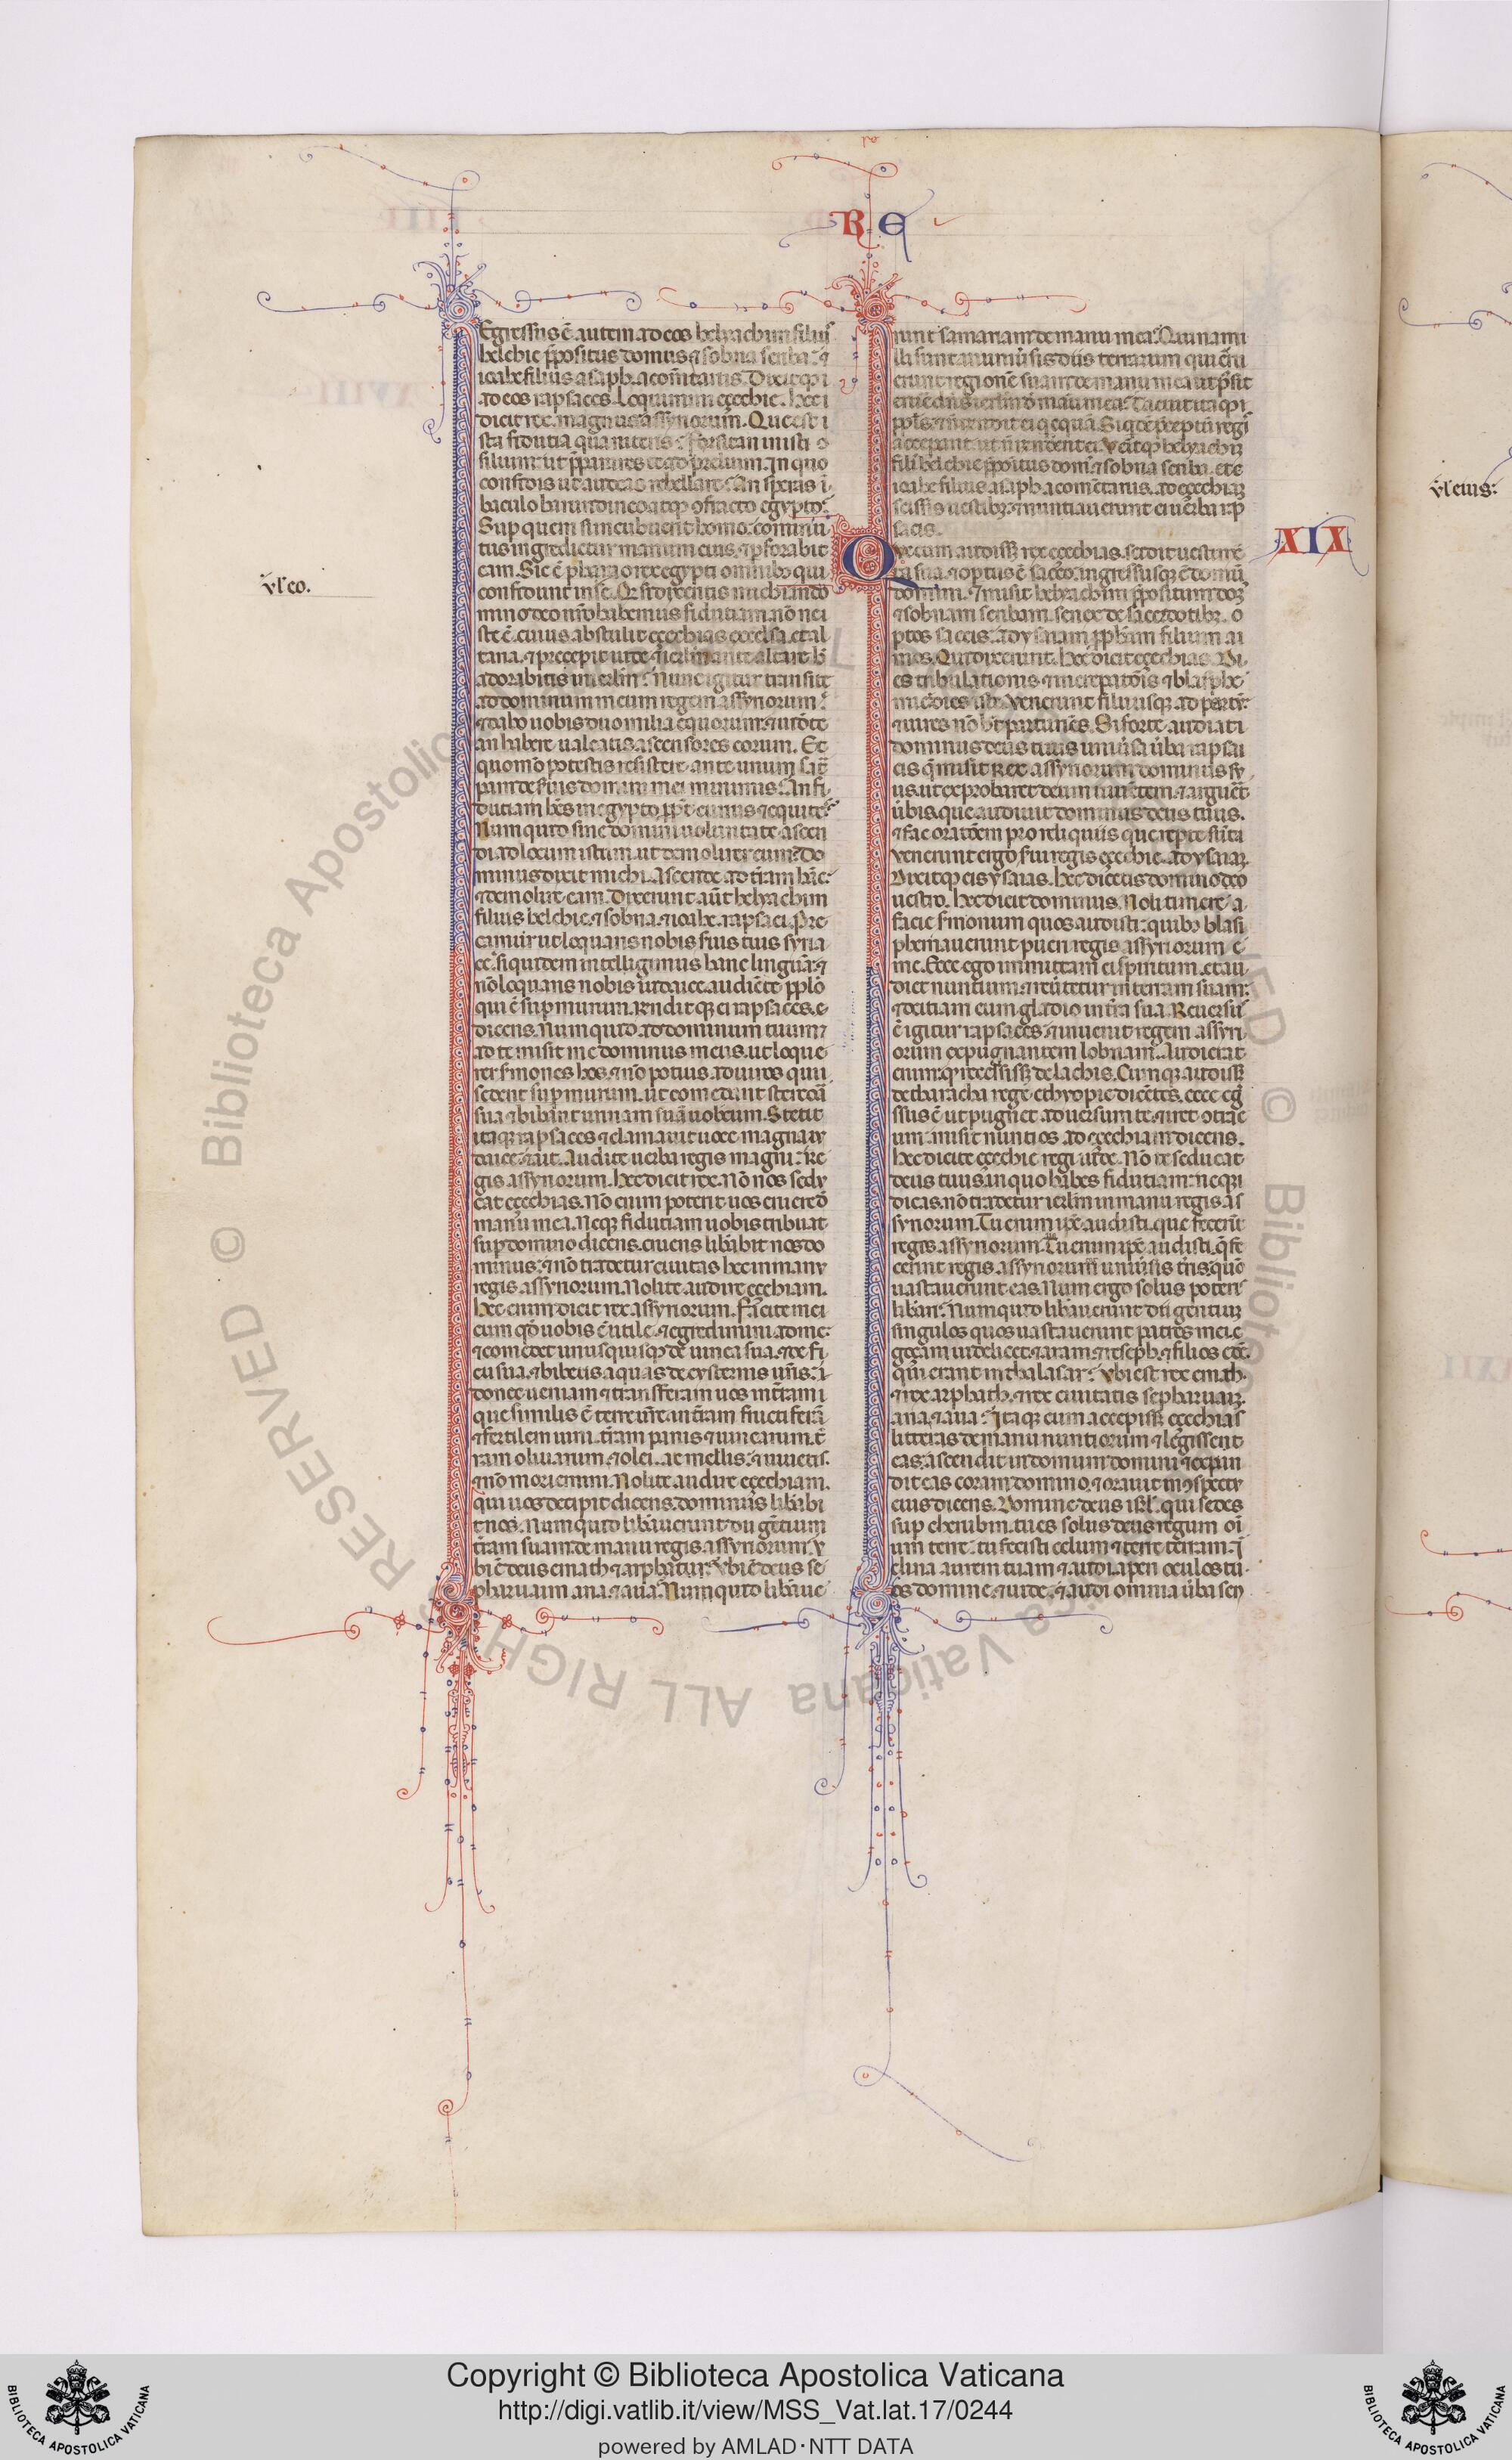 RE
Egressus ē autem ad eos helyachim filius
helchie p̄positus domus ⁊ sobna scriba: ⁊
icahe filius asaph. a com̄tariis. Dixit qꝫ
ad eos rapsaces. Loquimini eçechie. hec
dicit rex magnus assyriorum. Que est i
sta fidutia qua niteris? Forsitan inisti
silium: ut p̄pares te ad prelium. In quo
confidis ut audeas rebellare? An speras i
baculo harundineo atqꝫ ꝯfracto egypto:
Sup quem si incubuerit homo. cominu
tus ingredietur manum eius. ⁊ pforabit
eam. Sic ē pharao rex egypti omnibꝰ qui
ul eo.
confidunt in se. Qꝫ si dixeritis michi. in do
mino deo nr̄o habemus fidutiam. nōne i
ste ē. cuius abstulit eçechias excelsa. et al
taria. ⁊ precepit iude ⁊ ierl̄m. ante altare h̄
adorabitis in ierl̄m? Nunc igitur transite
ad dominum meum regem assyriorum.
⁊ dabo uobis duo milia equorum: ⁊ uidete
an habere ualeatis ascensores eorum. Et
quomō potestis resistere ante unum sat
pam de seruis domini mei minimis? An fi
dutiam hēs in egypto. ppt̄ currus ⁊ equites?
Numquid sine domini uoluntate ascen
di ad locum istum. ut demolirer eum? Do
minus dixit michi. Ascende ad tr̄am hāc:
⁊ demolire eam. Dixerunt aūt helyachim
filius helchie. ⁊ sobna. ⁊ icahe. rapsaci. Pre
camur ut loquaris nobis suis tuis syria
ce. siquidem intelligimus hanc linguā: ⁊
nō loquaris nobis iudaice. audiēte pplo
qui ē sup murum. Rn̄dit qꝫ ei rapsaces.
dicens. Numquid ad dominum tuum ⁊
ad te misit me dominus meus. ut loque
rer s̄mones hos. ⁊ nō potius ad uiros qui
sedent sup murum. ut comedant stercora
sua ⁊ bibant urinam suā uobcum. Stetit
itaqꝫ rapsaces ⁊ clamauit uoce magna iu
daice. ⁊ ait. Audite uerba regis magni: Re
gis assyriorum. Hec dicit rex. Nō uos sedu
cat eçechias. Nō enim poterit uos eruere d̄
manu mea. Neqꝫ fidutiam uobis tribuat
sup domino dicens. eruens lib̄abit nos do
minus: ⁊ nō tradetur ciuitas hec in manu
regis assyriorum. Nolite audire eçechiam.
Hec enim dicit rex assyriorum. Facite mecu
cum qd̄ uobis ē utile. ⁊ egredimini ad me:
⁊ comedet unusquisqꝫ de uinea sua. ⁊ de fi
cu sua. ⁊ bibetis aquas de cysternis ur̄is:
donec ueniam ⁊ transferam uos in tr̄am
que similis ē terre ur̄e. in tr̄am fructiferā
⁊ fertilem uini. tr̄am panis ⁊ uinearum. t̄
ram oliuarum. ⁊ olei. ac mellis: ⁊ uiuetis.
⁊ nō moriemini. Nolite audire eçechiam.
qui uos decipit dicens. dominus lib̄abi
t nos. Numquid lib̄auerunt dii gētium
tr̄am suam de manu regis assyriorum? V
bi ē deus emath ⁊ arphat? Ubi ē deus se
pharuaim ana. ⁊ aua? Numquid lib̄aue
runt samariam de manu mea? Quinam i
lli sunt in uniūsis diis terrarum qui eru
erunt regionē suam de manu mea ut p̄sit
eruere dn̄s ierl̄m d̄ manu mea? Tacuit itaqꝫ
ppl̄s. ⁊ n̄ rn̄dit ei q̄cquā. Siqdē p̄ceptū regis
acceperant. ut n̄ rn̄derent ei. Uēitqꝫ helyachim
filius helchie p̄positus dom̄. ⁊ sobna scriba. et
icahe filius asaph. a com̄tariis. ad eçechiam
scissis uestibꝫ. ⁊ nuntiauerunt ei uerba rap
sacis.
XIX
Que cum audissꝫ rex eçechias. scidit uestim̄
ta sua. ⁊ optus ē sacco. ingressusqꝫ ē domū
domini. ⁊ misit helyachim p̄positum domꝰ
⁊ sobnam scribam. senes de sacerdotibꝫ. o
ptos saccis. ad ysaiam pphām filium a
mos. Qui dixerunt. Hec dicit eçechias. Di
es tribulationis ⁊ increpatōis ⁊ blasphe
mie dies iste. Venerunt filii usqꝫ ad partū:
⁊ uires nō h̄t parturiēs. Si forte audiat
dominus deus tuus uniūsa ūba rapsa
cis q̄ misit Rex assyriorum dominus su
us. ut exprobaret deum uiuētem. ⁊ argueret
ūbis. que audiuit dominus deus tuus.
⁊ fac oratōem pro reliquiis que repte sunt.
Venerunt ergo serui regis eçechie. ad ysaiaꝫ.
Dixitqꝫ eis ysaias. Hec dicetis domino
uestro. Hec dicit dominus. Noli timere a
facie s̄monum quos audisti: quibꝰ blas
phemauerunt pueri regis assyriorum
me. Ecce ego immittam ei spiritum. et au
diet nuntium. ⁊ reūtetur in terram suam:
⁊ deiciam eum gladio in tr̄a sua. Reuersus
ē igitur rapsaces. ⁊ inuenit regem assyri
orum expugnantem lobnam. Audierat
enim. qꝫ recessissꝫ de lachis. Cumqꝫ audissꝫ
de tharacha rege ethyopie dicētes. ecce eḡ
ssus ē ut pugnet aduersum te. ⁊ iret ꝯtra e
um: misit nuntios ad eçechiam dicens.
Hec dicite eçechie regi iude. Nō te seducat
deus tuus. in quo habes fidutiam: neqꝫ
dicas. nō tradetur ierl̄m in manu regis as
syriorum. Tu enim ipse audisti. que fecerūt
reges assyriorum. Tu enim ipse audisti. q̄ fe
cerint regis assyriorum uniūsis tr̄is. quō
uastauerunt eas. Num ergo solus poteris
lib̄ari? Numquid lib̄auerunt dii gentium
singulos quos uastauerunt patres mei.
goçam uidelicet. ⁊ aram. ⁊ reseph. ⁊ filios eden.
qui erant in thalasar? Ubi est rex emath.
⁊ rex arphath. ⁊ rex ciuitatis sepharuaim.
ana. ⁊ aua? Itaqꝫ cum accepissꝫ eçechias
litteras de manu nuntiorum ⁊ legissent
eas: ascendit in domum domini ⁊ expan
dit eas coram domino. ⁊ orauit in ꝯspectu
eius dicens. Domine deus isrl̄. qui sedes
sup cherubin. tu es solus deus regum om̄
um terre: tu fecisti celum ⁊ terram. in
clina aurem tuam ⁊ audi. aperi oculos tu
os domine. ⁊ uide. ⁊ audi omnia ūba sen
ul eius:
Copyright © Biblioteca Apostolica Vaticana
http://digi.vatlib.it/view/MSS_Vat.lat.17/0244
powered by AMLAD·NTT DATA
BIBLIOTECA APOSTOLICA VATICANA
BIBLIOTECA APOSTOLICA VATICANA
© Biblioteca Apostolica Vaticana ALL RIGHTS RESERVED